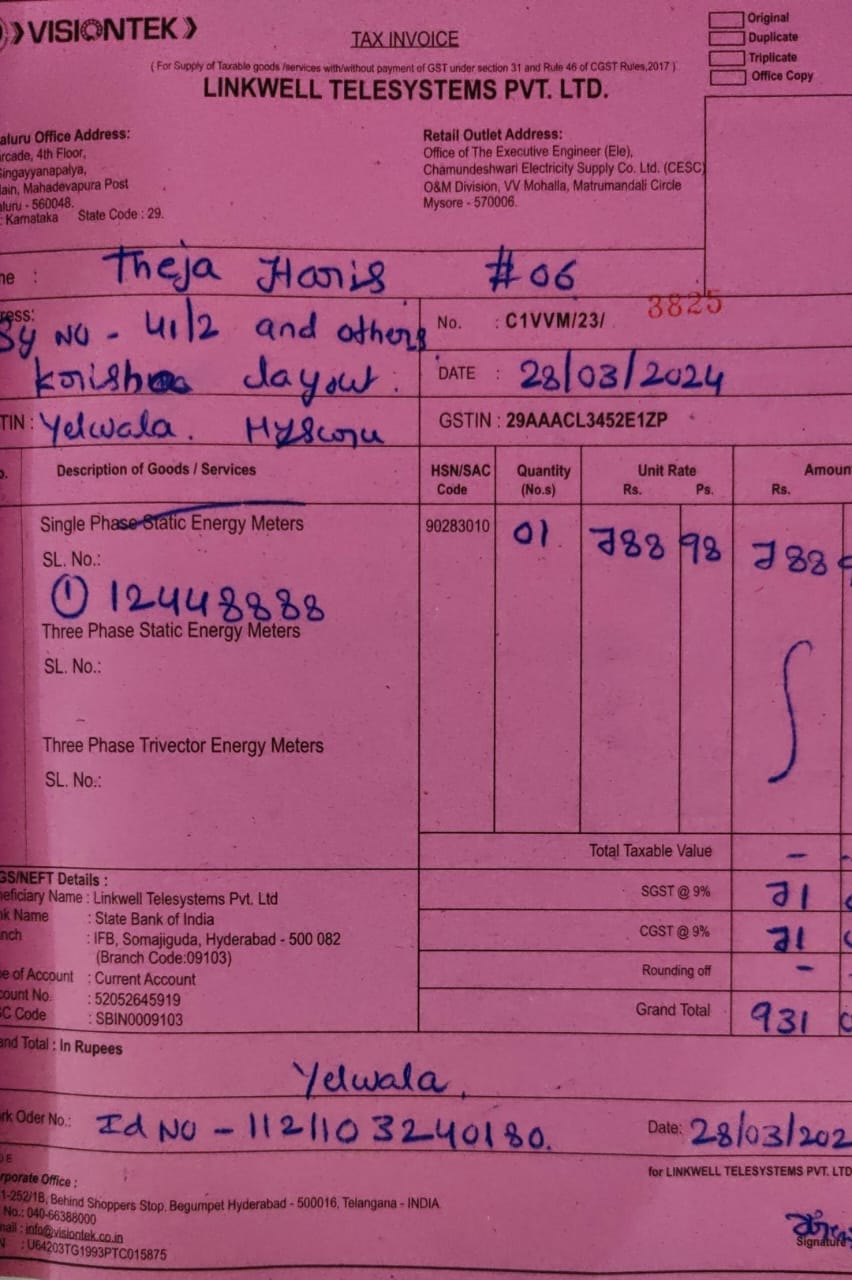 VISIONTEK
TAX INVOICE
Original
Duplicate
Triplicate
Office Copy
( For Supply of Taxable goods /services with/without payment of GST under section 31 and Rule 46 of CGST Rules,2017 )
LINKWELL TELESYSTEMS PVT. LTD.
aluru Office Address:
rcade, 4th Floor,
ingayyanapalya,
ain, Mahadevapura Post
aluru - 560048.
: Karnataka State Code : 29.
Retail Outlet Address:
Office of The Executive Engineer (Ele),
Chamundeshwari Electricity Supply Co. Ltd. (CESC)
O&M Division, VV Mohalla, Matrumandali Circle
Mysore - 570006.
me : Theja Haris #06
ress:
Sy NO - 41/2 and others
layout :
TIN : Yelwala.
No. : C1VVM/23/ 3825
DATE : 28/03/2024
GSTIN : 29AAACL3452E1ZP
o. Description of Goods / Services HSN/SAC Code Quantity (No.s) Unit Rate Rs. Ps. Amoun Rs.
Single Phase Static Energy Meters 90283010 01 788 98 788 9
SL. No.:
① 12448888
Three Phase Static Energy Meters
SL. No.:
Three Phase Trivector Energy Meters
SL. No.:
Total Taxable Value -
SGST @ 9% 71
CGST @ 9% 71
Rounding off -
Grand Total 931
GS/NEFT Details :
eficiary Name : Linkwell Telesystems Pvt. Ltd
nk Name : State Bank of India
nch : IFB, Somajiguda, Hyderabad - 500 082
(Branch Code:09103)
e of Account : Current Account
count No. : 52052645919
C Code : SBIN0009103
and Total : In Rupees
Yelwala,
rk Oder No.: Id NO - 112110 3240180. Date: 28/03/202
for LINKWELL TELESYSTEMS PVT. LTD
rporate Office :
1-252/1B, Behind Shoppers Stop, Begumpet Hyderabad - 500016, Telangana - INDIA
No.: 040-66388000
mail : info@visiontek.co.in
N : U64203TG1993PTC015875
Signature